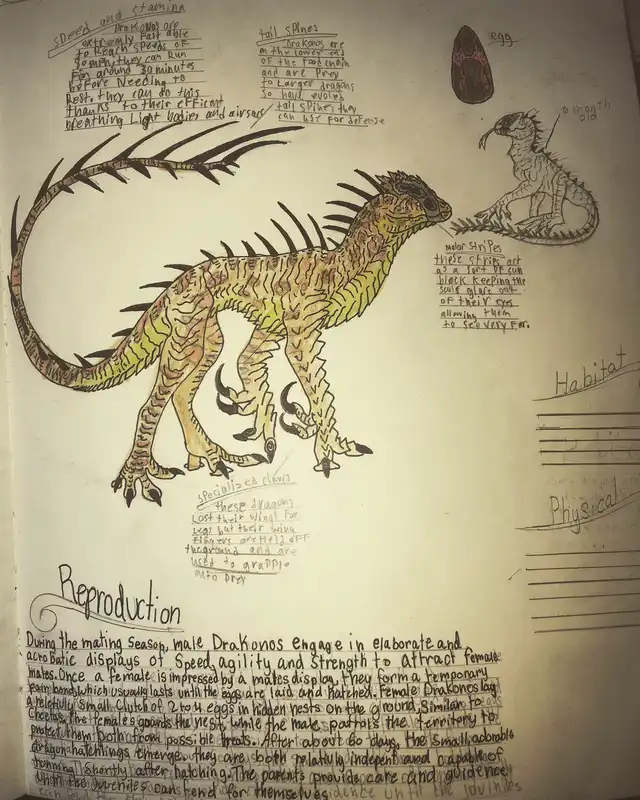 Speed and stamina
Drakonos are
extremely fast able
to reach speeds of
they can run
For around 30 minutes
before needing to
Rest, they can do this
thanks to their efficant
breathing light bodies and airsacs
tail spines
Drakonos are
on the lower end
of the food chain
and are Prey
to Larger dragons
so have evolves
tail spines they
can use for defense
egg
month
old
Malar stripes
these stripes act
as a sort of sun
block keeping the
suns glare out
of their eyes
allowing them
to see very Far.
Habitat
Physical
specialized claws
these dragons
Lost their wings For
legs but their wing
Fingers are Held off
the ground and are
used to grapple
onto prey
Reproduction
During the mating season, male Drakonos engage in elaborate and
acrobatic displays of speed, agility and strength to attract female
males. Once a female is impressed by a males display, they form a temporary
pair bond, which usually lasts until the eggs are laid and hatched. Female Drakonos lay
a relatively small clutch of 2 to 4 eggs in hidden nests on the ground, similar to
cheetas, The females guards the nest, while the male patrols the territory to
protect them both from possible treats. After about 60 days, the small, adorable
dragon hatchlings emerge. they are both and capable of
running shortly after hatching. The parents provide care and guidence
until the juveniles can tend for themselves